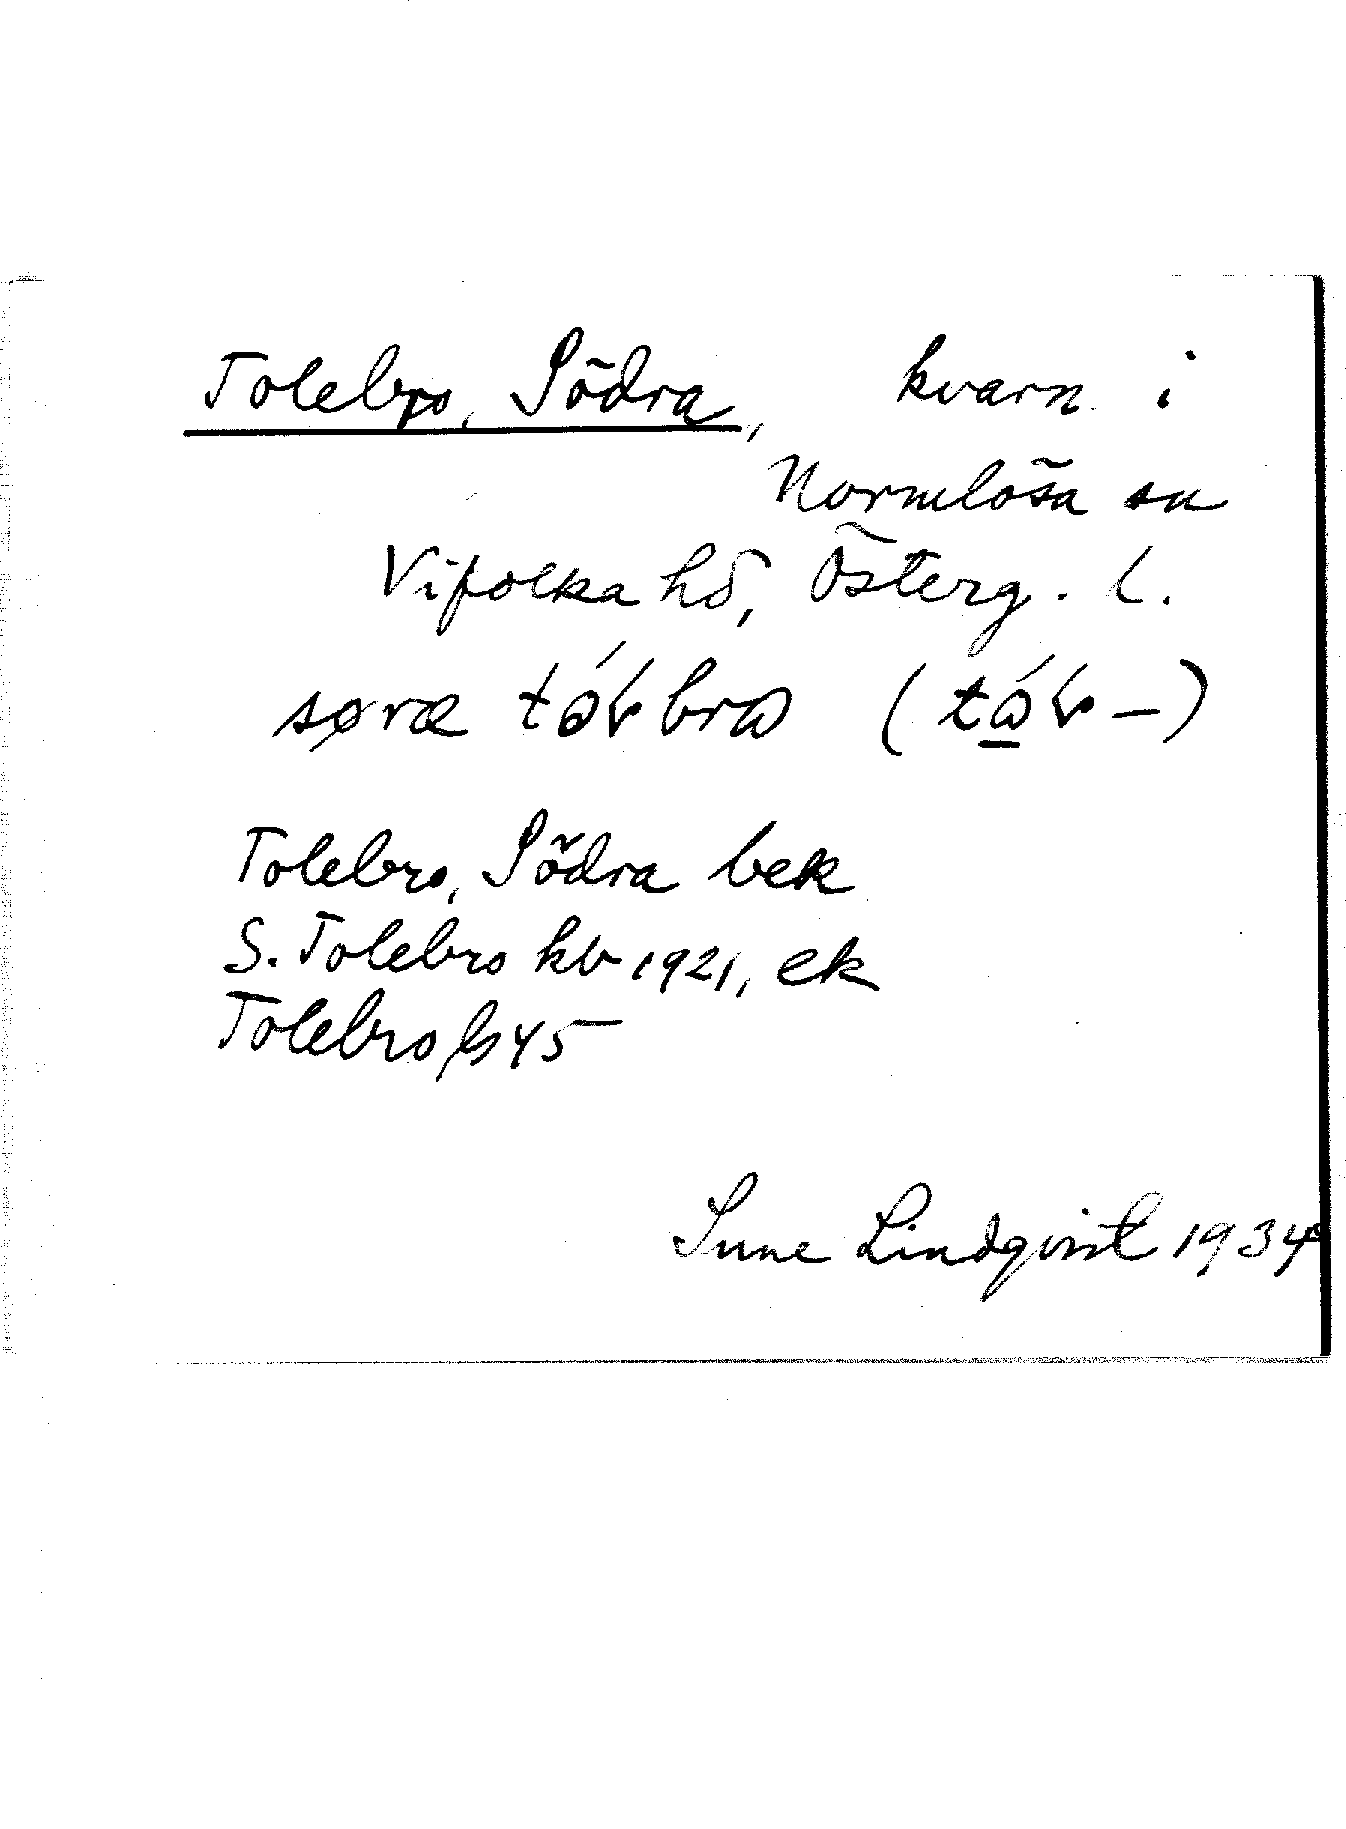 Tolebro, Södra, kvarn i
Normlösa sn
Vifolka hd, Österg. l.
søræ
Tolebro, Södra bek
S. Tolebro kb 1921, ek
Tolebro 45
Sune Lindqvist 1934